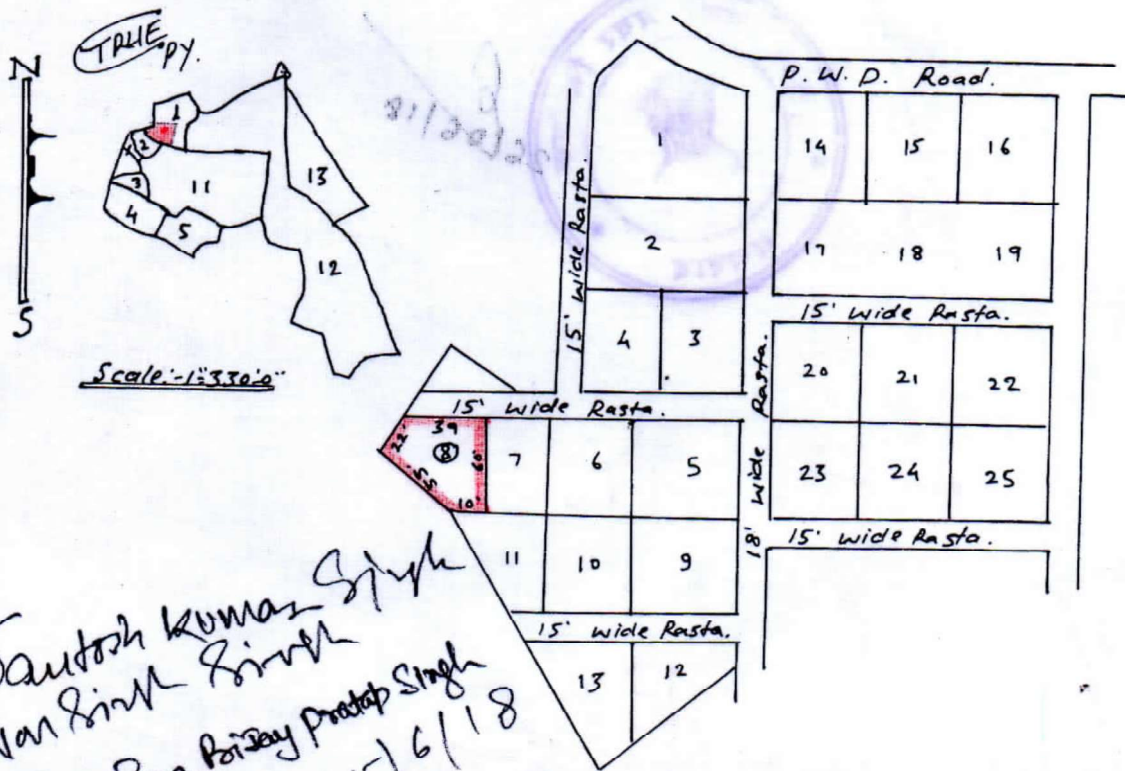 TRUE
PY.
N
S
1
2
3
4
5
11
13
12
Scale:-1"=330'0"
P. W. D. Road.
1
2
4
3
15' wide Rasta.
14
15
16
17
18
19
15' wide Rasta.
20
21
22
23
24
25
15' wide Rasta.
18' wide Rasta.
15' wide Rasta.
22'
39
8
60
55
10'
7
6
5
11
10
9
15' wide Rasta.
13
12
Santosh Kumar Singh
Singh
Bijay Pratap Singh
/6/18